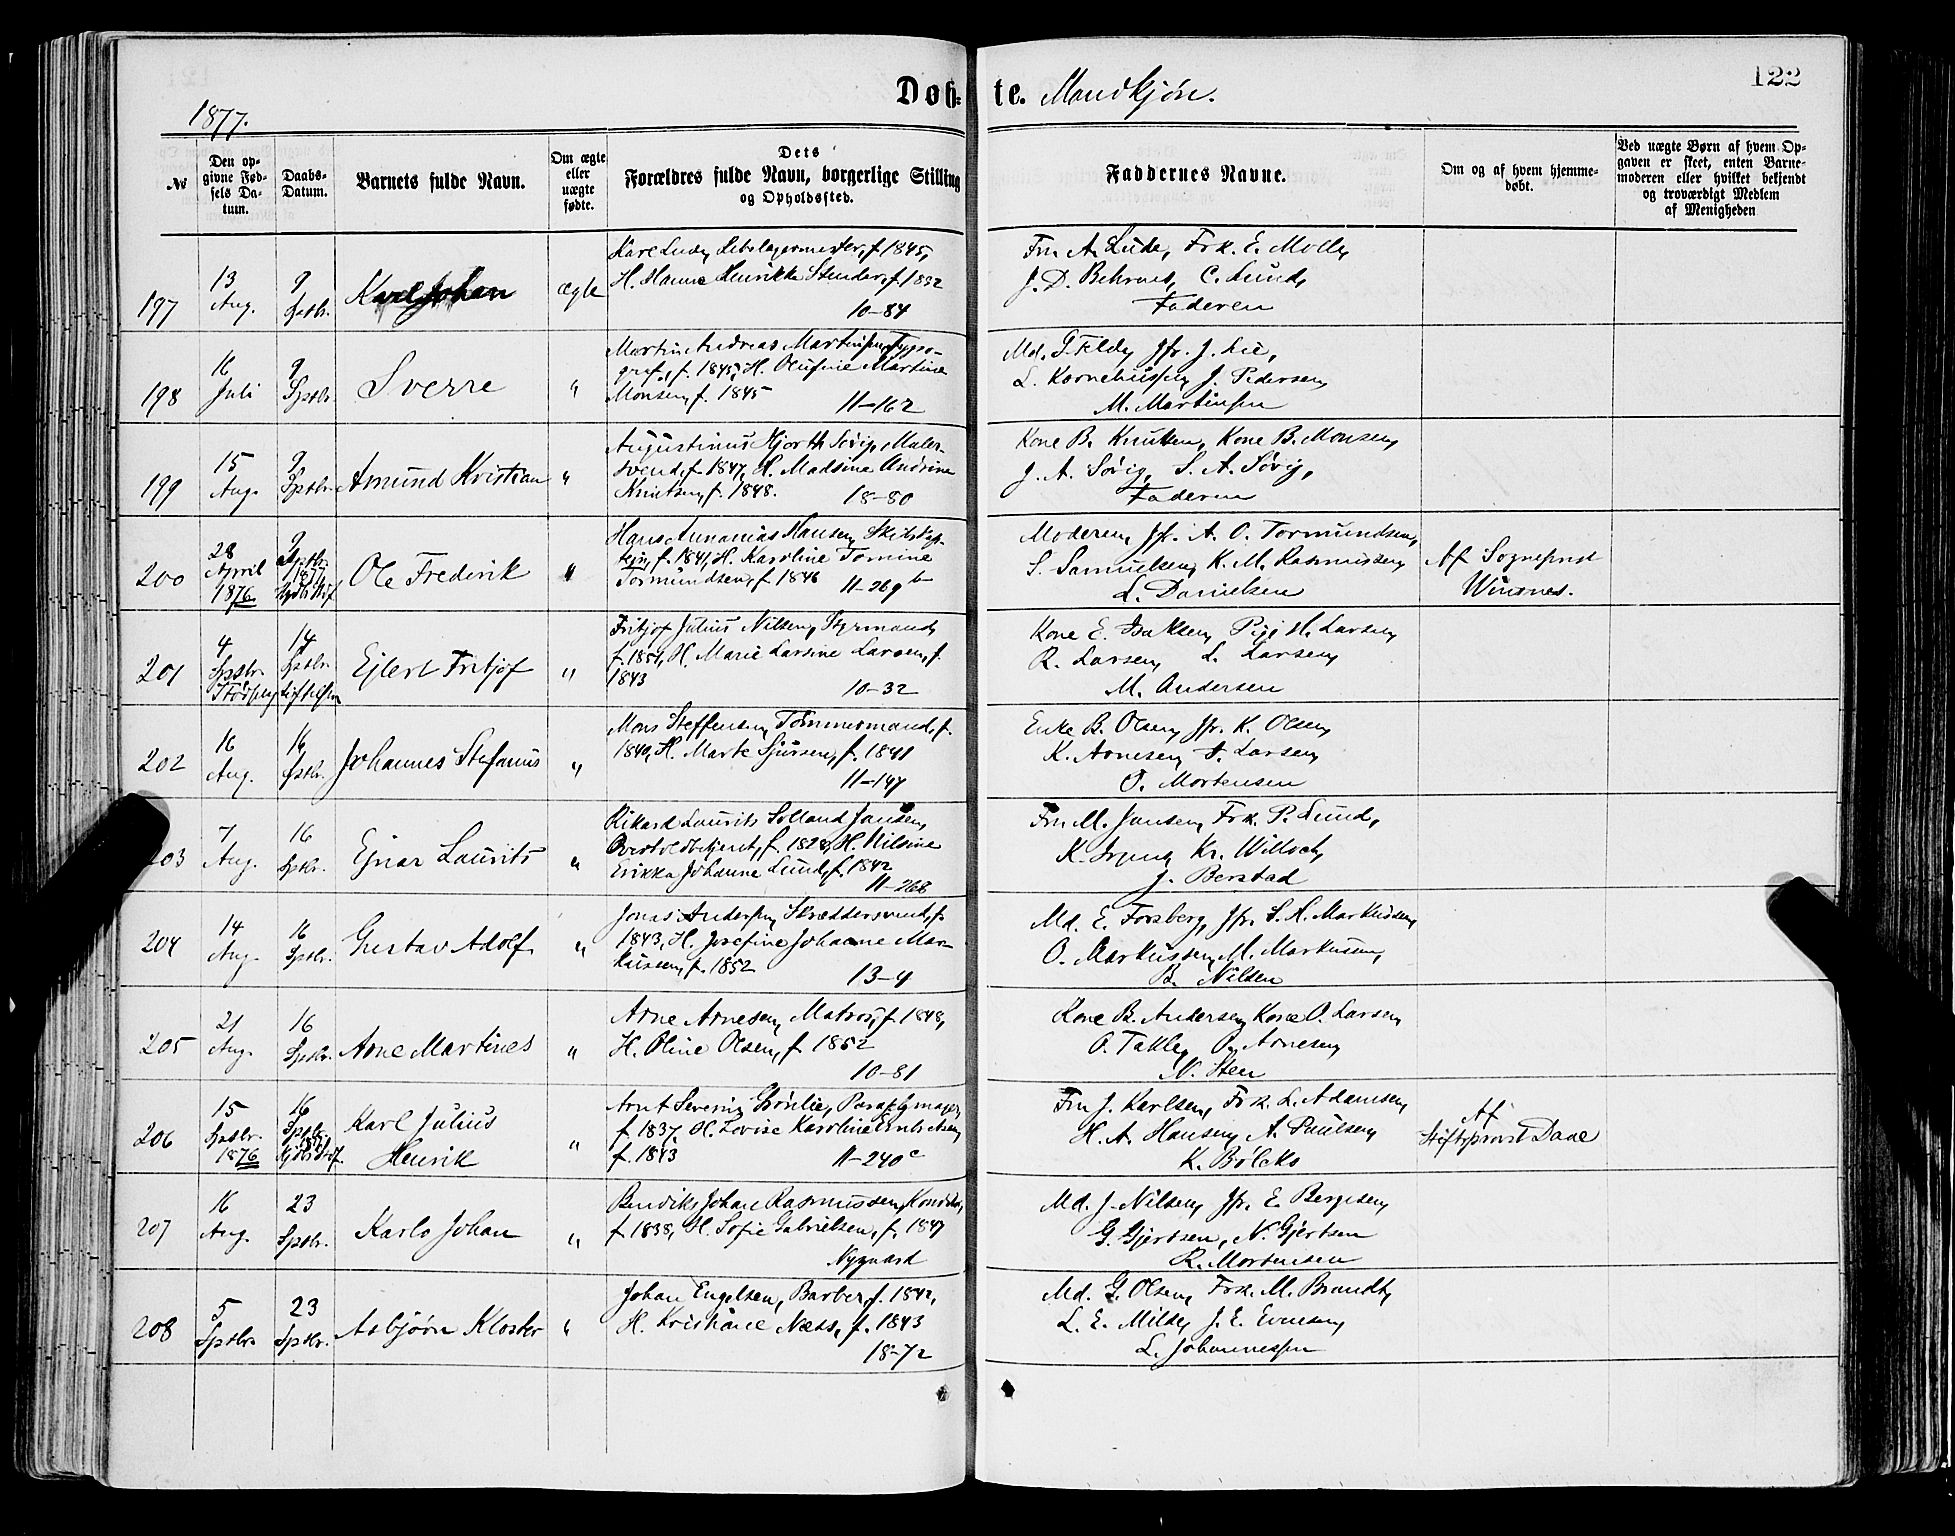 122
Døb= te. Mandkjøn.
1877.
№
Den op-
givne Fød-
sels Da-
tum.
Daabs-
Datum.
Barnets fulde Navn.
Om ægte
eller
uægte
fødte.
Dets
Forældres fulde Navn, borgerlige Stilling
og Opholdssted.
Faddernes Navne.
Om og af hvem hjemme-
døbt.
Ved uægte Børn af hvem Op-
gaven er skeet, enten Barne-
moderen eller hvilket bekjendt
og troværdigt Medlem
af Menigheden
197
13
Aug.
9
Sptbr.
Karl Johan
ægte
f. 1845,
H. Hanne Henrikke f. 1832
10-84
Fru A. Lude, Frk. E. Molle,
J. D. C. Lund,
Faderen
198
16
Juli
9
Sptbr.
Sverre
"
Martin Andreas Martinsen, Typo-
graf, f. 1845, H. Olufine Martine
Monsen, f. 1845
11-162
Md. Jfr. J. Lie,
L. J. Pedersen,
M. Martinsen
199
15
Aug.
9
Sptbr.
Amund Kristian
"
Augustinus Hjorth Søvig, Maler-
svend, f. 1847, H. Madsine Andrine
Knutsen, f. 1848.
18-80
Kone B. Knutsen, Kone B. Monsen,
J. A. Søvig, S. A. Søvig,
Faderen
200
28
April
1876
9
Sptbr.
1877
Ole Frederik
"
Hans Annanias Hansen,
f. 1841, H. Karoline Tomine
Tormundsen, f. 1846
11-269 b
Moderen, Jfr. A. O. Tormundsen,
S. Samuelsen, K. M. Rasmussen,
L. Danielsen
Af Sogneprest
Winsnes.
201
4
Sptbr.
14
Sptbr.
Ejlert Fritjof
"
Fritjof Julius Nilsen, Styrmand,
f. 1851, H. Marie Larsine Larsen, f.
1843
10-32
Kone E. Isaksen, Pige H. Larsen,
R. Larsen, L. Larsen,
M. Andersen
202
16
Aug.
16
Sptbr.
Johannes Stefanus
"
Mons Steffensen, Tømmermand, f.
1840, H. Marte Sjursen, f. 1841
11-147
Enke B. Olsen, Jfr. K. Olsen,
K. Arnesen, Larsen,
O. Mortensen
203
7
Aug.
16
Sptbr.
Ejnar Laurits
"
Rikard Laurits Solland Jansen,
f. 1828, H. Nilsine
Erikka Johanne Lund, f. 1842
11-268
Fru M. Jansen, Frk. P. Lund,
K. Kr. Willoch,
J. Berstad
204
14
Aug.
16
Sptbr.
Gustav Adolf
"
Jonas Andersen, Skræddersvend, f.
1843, H. Josefine Johanne Mar-
kussen, f. 1852
13-4
Md. E. Forsberg, Jfr. S. A. Markussen,
O. Markussen, M. Markussen,
B. Nilsen
205
21
Aug.
16
Sptbr.
Arne Martines
"
Arne Arnesen, Matros, f. 1848,
H. Oline Olsen, f. 1852
10-81
Kone B. Andersen, Kone O. Larsen,
O. Takle, O. Arnesen,
N. Steen
206
15
Sptbr.
1876
16
Sptbr.
1877
Karl Julius
Henrik
"
Arnt Severin Grønlie, Paraplymager,
f. 1837, H. Lovise Karoline
f. 1843
11-240 c
Fru J. Karlsen, Frk. L. Adamsen,
H. A. Hansen, A. Paulsen,
K.
Af
Stiftsprovst Daae
207
16
Aug.
23
Sptbr.
Karlo Johan
"
Bendiks Johan Rasmussen,
f. 1838, H. Sofie Gabrielsen, f. 1847
Nygaard
Md. J. Nilsen, Jfr. E. Bergesen,
G. Gjertsen, N. Gjertsen
R. Mortensen
208
5
Sptbr.
23
Sptbr.
Asbjørn Kloster
"
Johan Engelsen, Barber, f. 1842,
H. Kristiane Næss, f. 1843
18-72
Md. G. Olsen, Frk. M. Brandt,
L. E. Milde, J. E. Evensen,
L. Johannessen